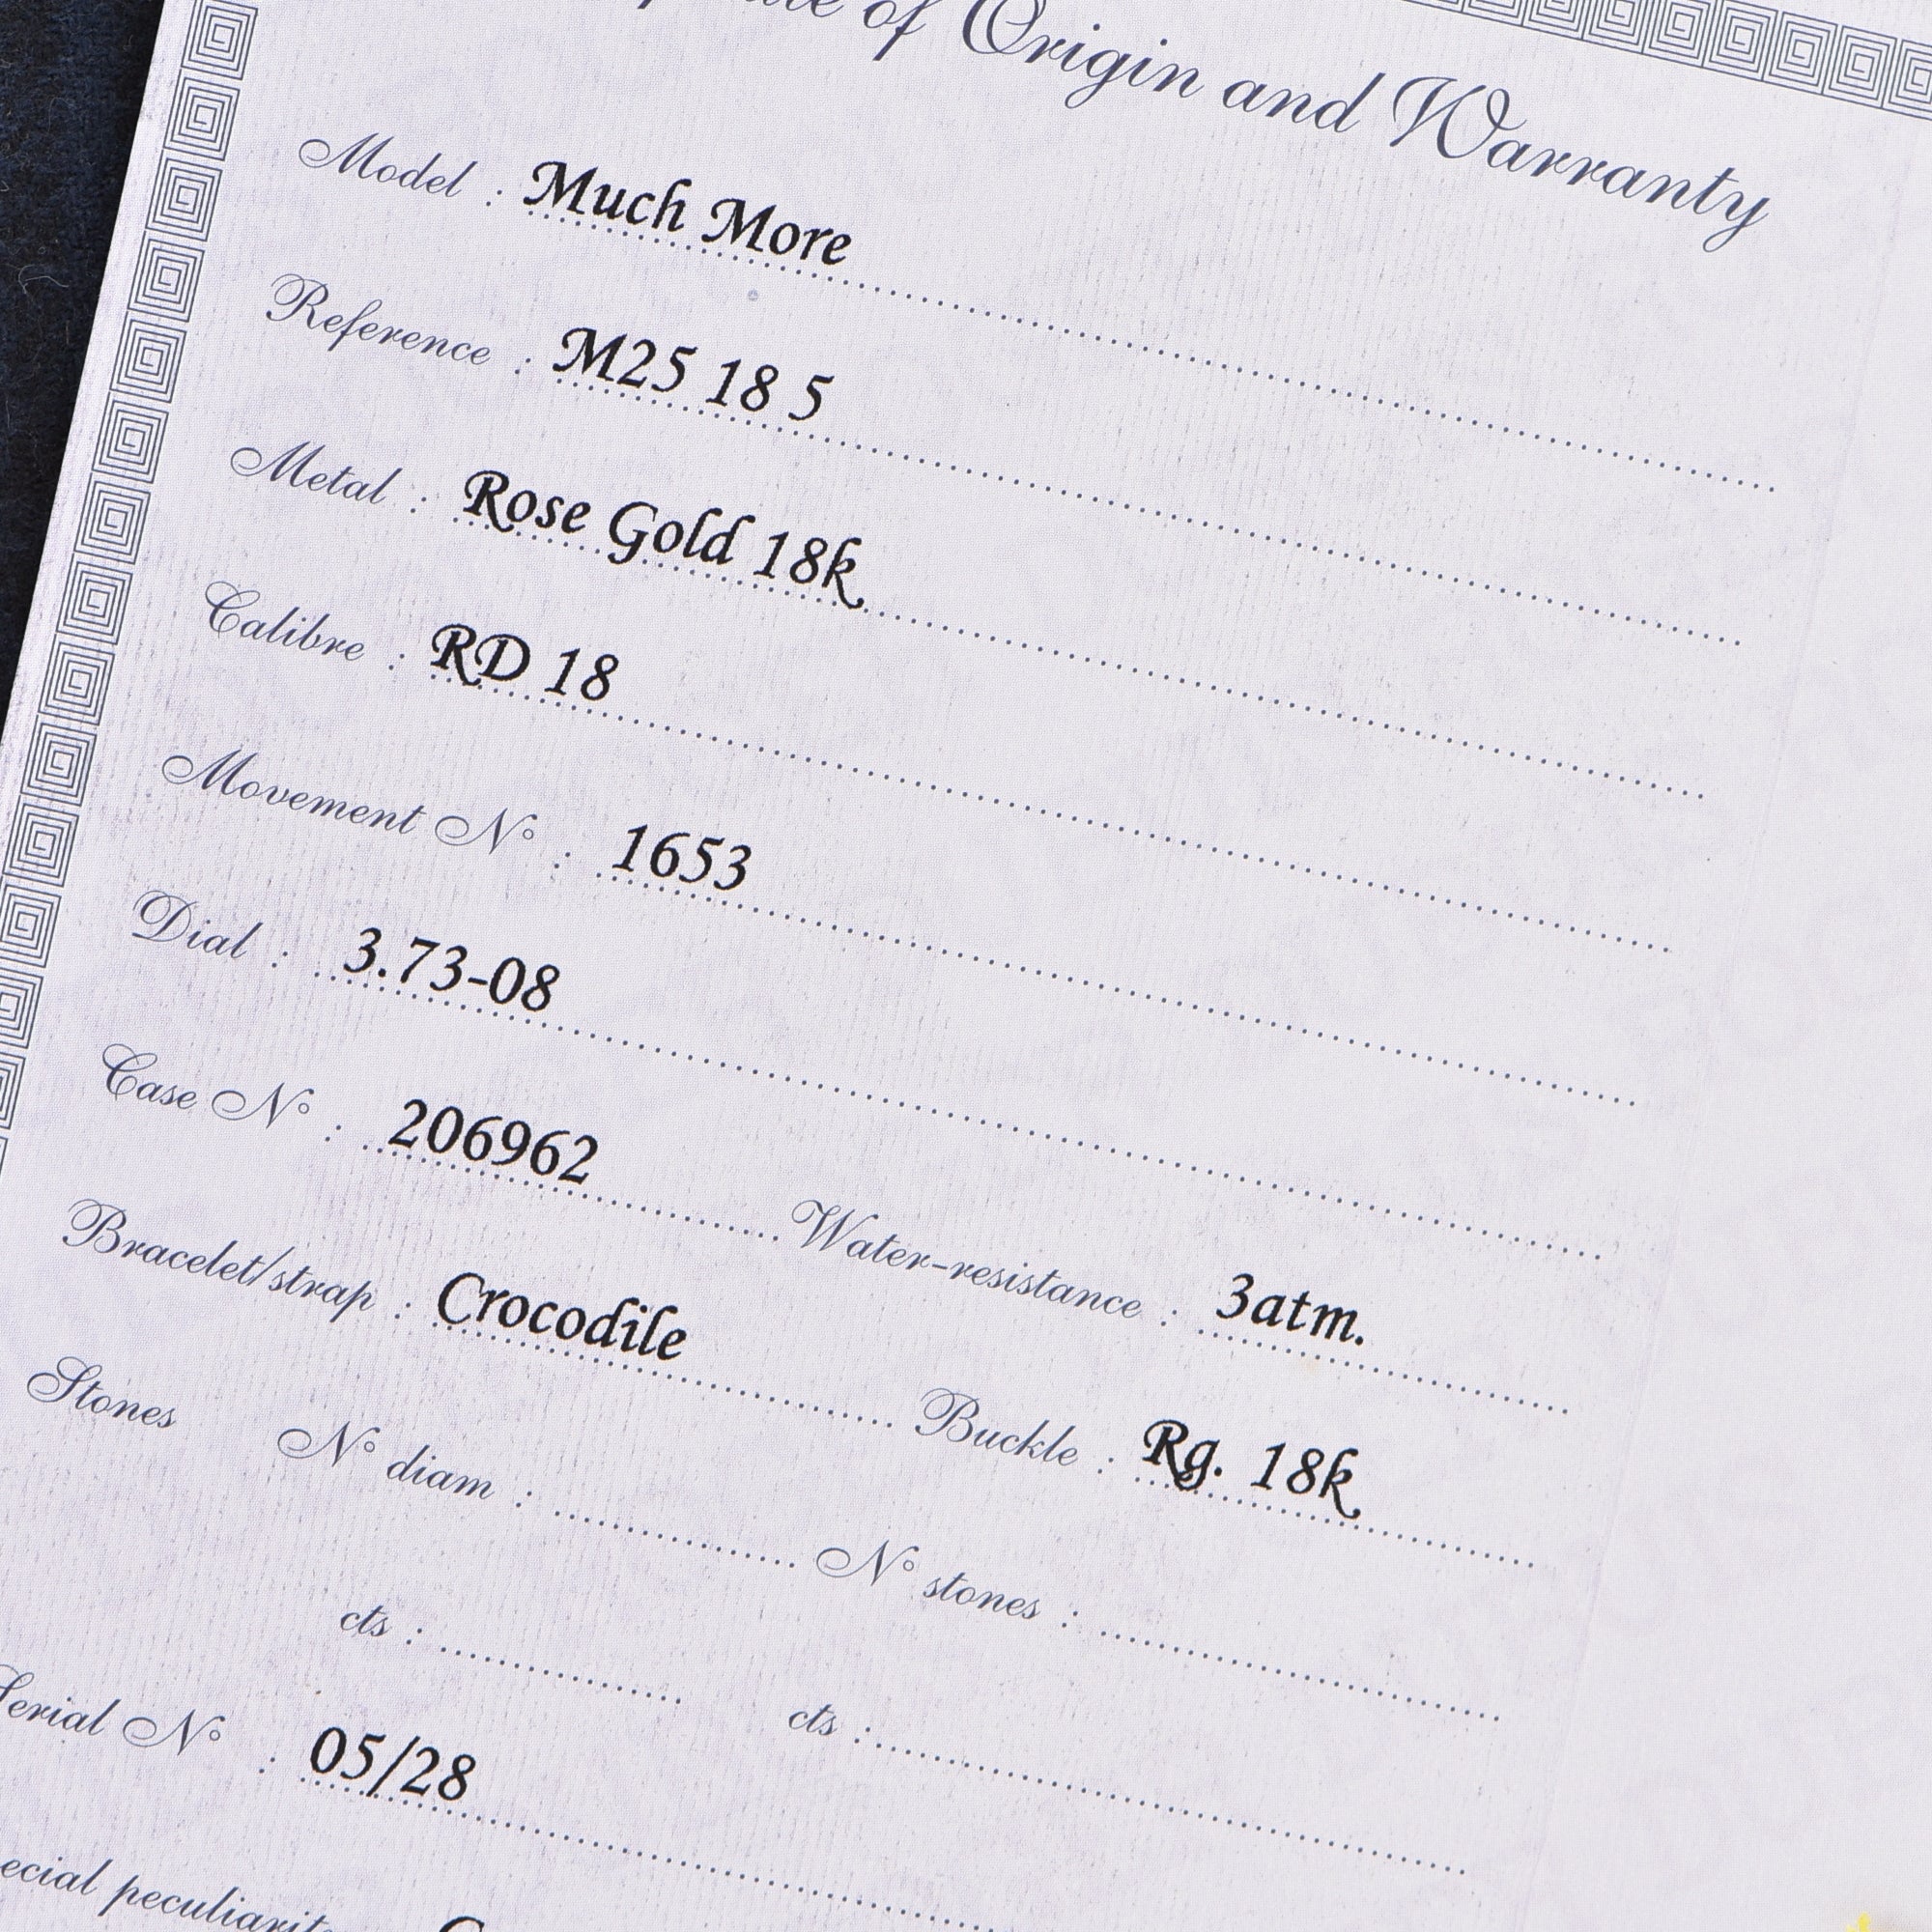 of Origin and Warranty
Model : Much More
Reference : M25 18 5
Metal : Rose Gold 18k
Calibre : RD 18
Movement N° : 1653
Dial : 3.73-08
Case N° : 206962 Water-resistance : 3atm.
Bracelet/strap : Crocodile Buckle : Rg. 18k
Stones N° diam : N° stones :
cts : cts :
Serial N° : 05/28